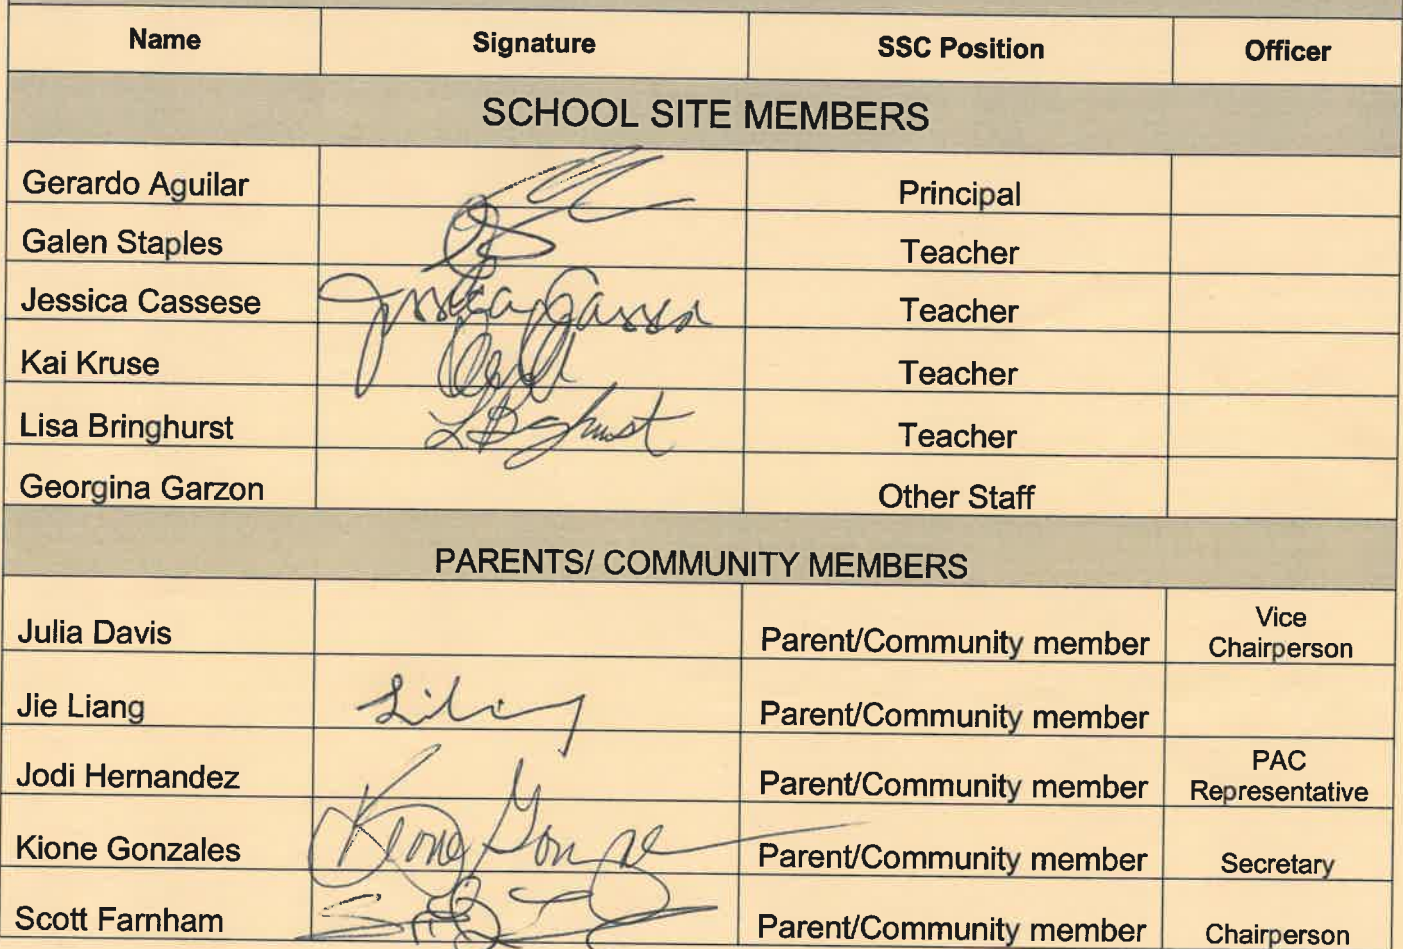 Name Signature SSC Position Officer
SCHOOL SITE MEMBERS
Gerardo Aguilar Principal
Galen Staples Teacher
Jessica Cassese Jessica Cassese Teacher
Kai Kruse Teacher
Lisa Bringhurst LBghurst Teacher
Georgina Garzon Other Staff
PARENTS/ COMMUNITY MEMBERS
Julia Davis Parent/Community member Vice
Chairperson
Jie Liang Parent/Community member
Jodi Hernandez Parent/Community member PAC
Representative
Kione Gonzales Kione Parent/Community member Secretary
Scott Farnham Parent/Community member Chairperson